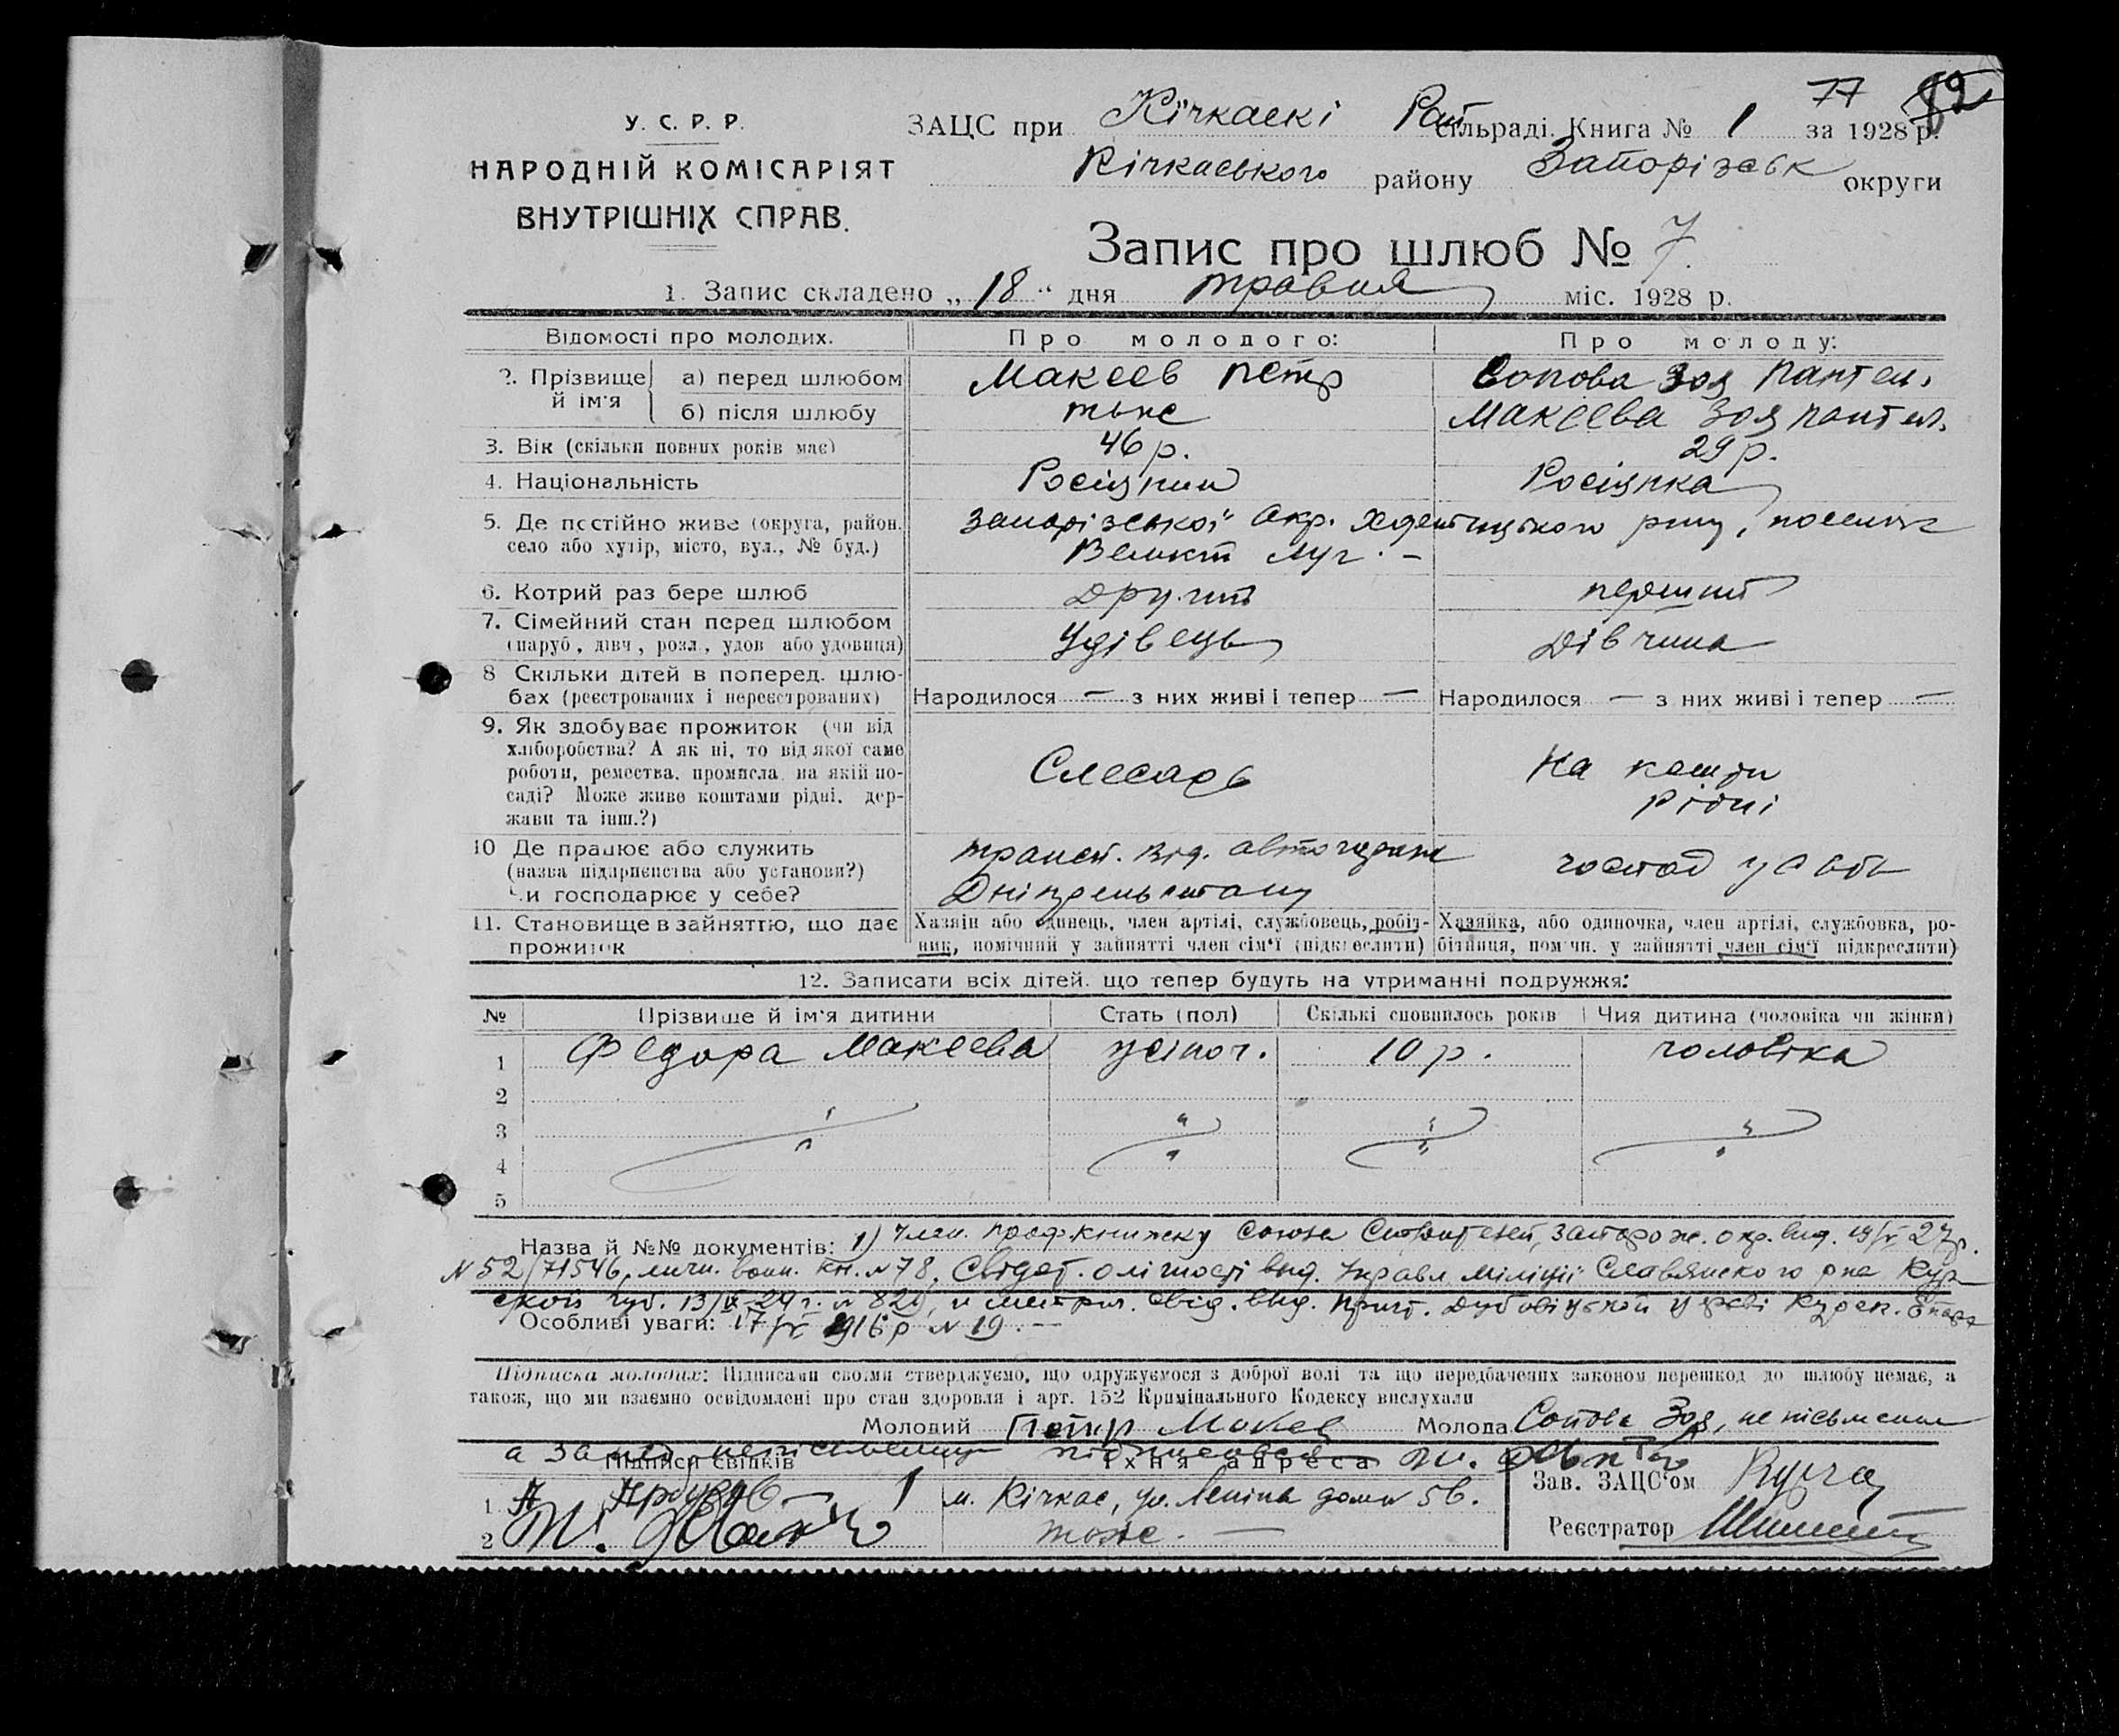 77 82
У. С. Р. Р.
НАРОДНІЙ КОМІСАРІЯТ
ВНУТРІШНІХ СПРАВ.
ЗАЦС при Кічкаскі Рай сільраді. Книга № 1 за 1928 р.
Кічкаського району Запорізськ округи
Запис про шлюб № 7.
1. Запис складено „18“ дня травня міс. 1928 р.
Відомості про молодих. Про молодого: Про молоду:
2. Прізвище й ім'я а) перед шлюбом Макеев Петр Сопова Зоя Пантел.
б) після шлюбу тоже Макеева Зоя Пантел.
3. Вік (скільки повних років має) 46 р. 29 р.
4. Національність Росіянин Росіянка
5. Де постійно живе (округа, район, село або хутір, місто, вул., № буд.) Запорізської Окр. Хортицького рну,
Великий Луг. —
6. Котрий раз бере шлюб Другий перший
7. Сімейний стан перед шлюбом (паруб., дівч., розл., удов. або удовиця) Удівець Дівчина
8 Скільки дітей в поперед. шлюбах (реєстрованих і нереєстрованих) Народилося — з них живі і тепер — Народилося — з них живі і тепер —
9. Як здобуває прожиток (чи від хліборобства? А як ні, то від якої саме роботи, ремества, промисла, на якій посаді? Може живе коштами рідні, держави та інш.?) Слесарь На кошти рідні
10 Де працює або служить (назва підприємства або установи?) Чи господарює у себе? трансп. від.
11. Становище в зайняттю, що дає прожиток Хазяїн або одинець, член артілі, службовець, робітник, помічний у зайнятті член сім'ї (підкреслити) Хазяйка, або одиночка, член артілі, службовка, робітниця, помічн. у зайнятті член сім'ї підкреслити)
12. Записати всіх дітей, що тепер будуть на утриманні подружжя:
№ Прізвище й ім'я дитини Стать (пол) Скількі сповнилось років Чия дитина (чоловіка чи жінки)
1 Федора Макеева жіноч. 10 р. чоловіка
2
3
4
5
Назва й №№ документів: 1) Член. профкнижку Союза Строителей, Запорож. окр. вид. 27 р.
№ 52/71546, кн. № 78, Свідот. вид. Управл. Міліції Славянского рна Кур-
ской губ. вид. Прич. церкві
Особливі уваги: 1916 р № 19. —
Підписка молодих: Підписами своїми стверджуємо, що одружуємося з доброї волі та що передбачених законом перешкод до шлюбу немає, а
також, що ми взаємно освідомлені про стан здоровля і арт. 152 Кримінального Кодексу вислухали
Молодий Петр Макеев Молода Сопова Зоя,
Підписи свідків Їхня адреса
1 м. Кічкас, ул. Леніна
2 тоже. —
Зав. ЗАЦС'ом
Реєстратор